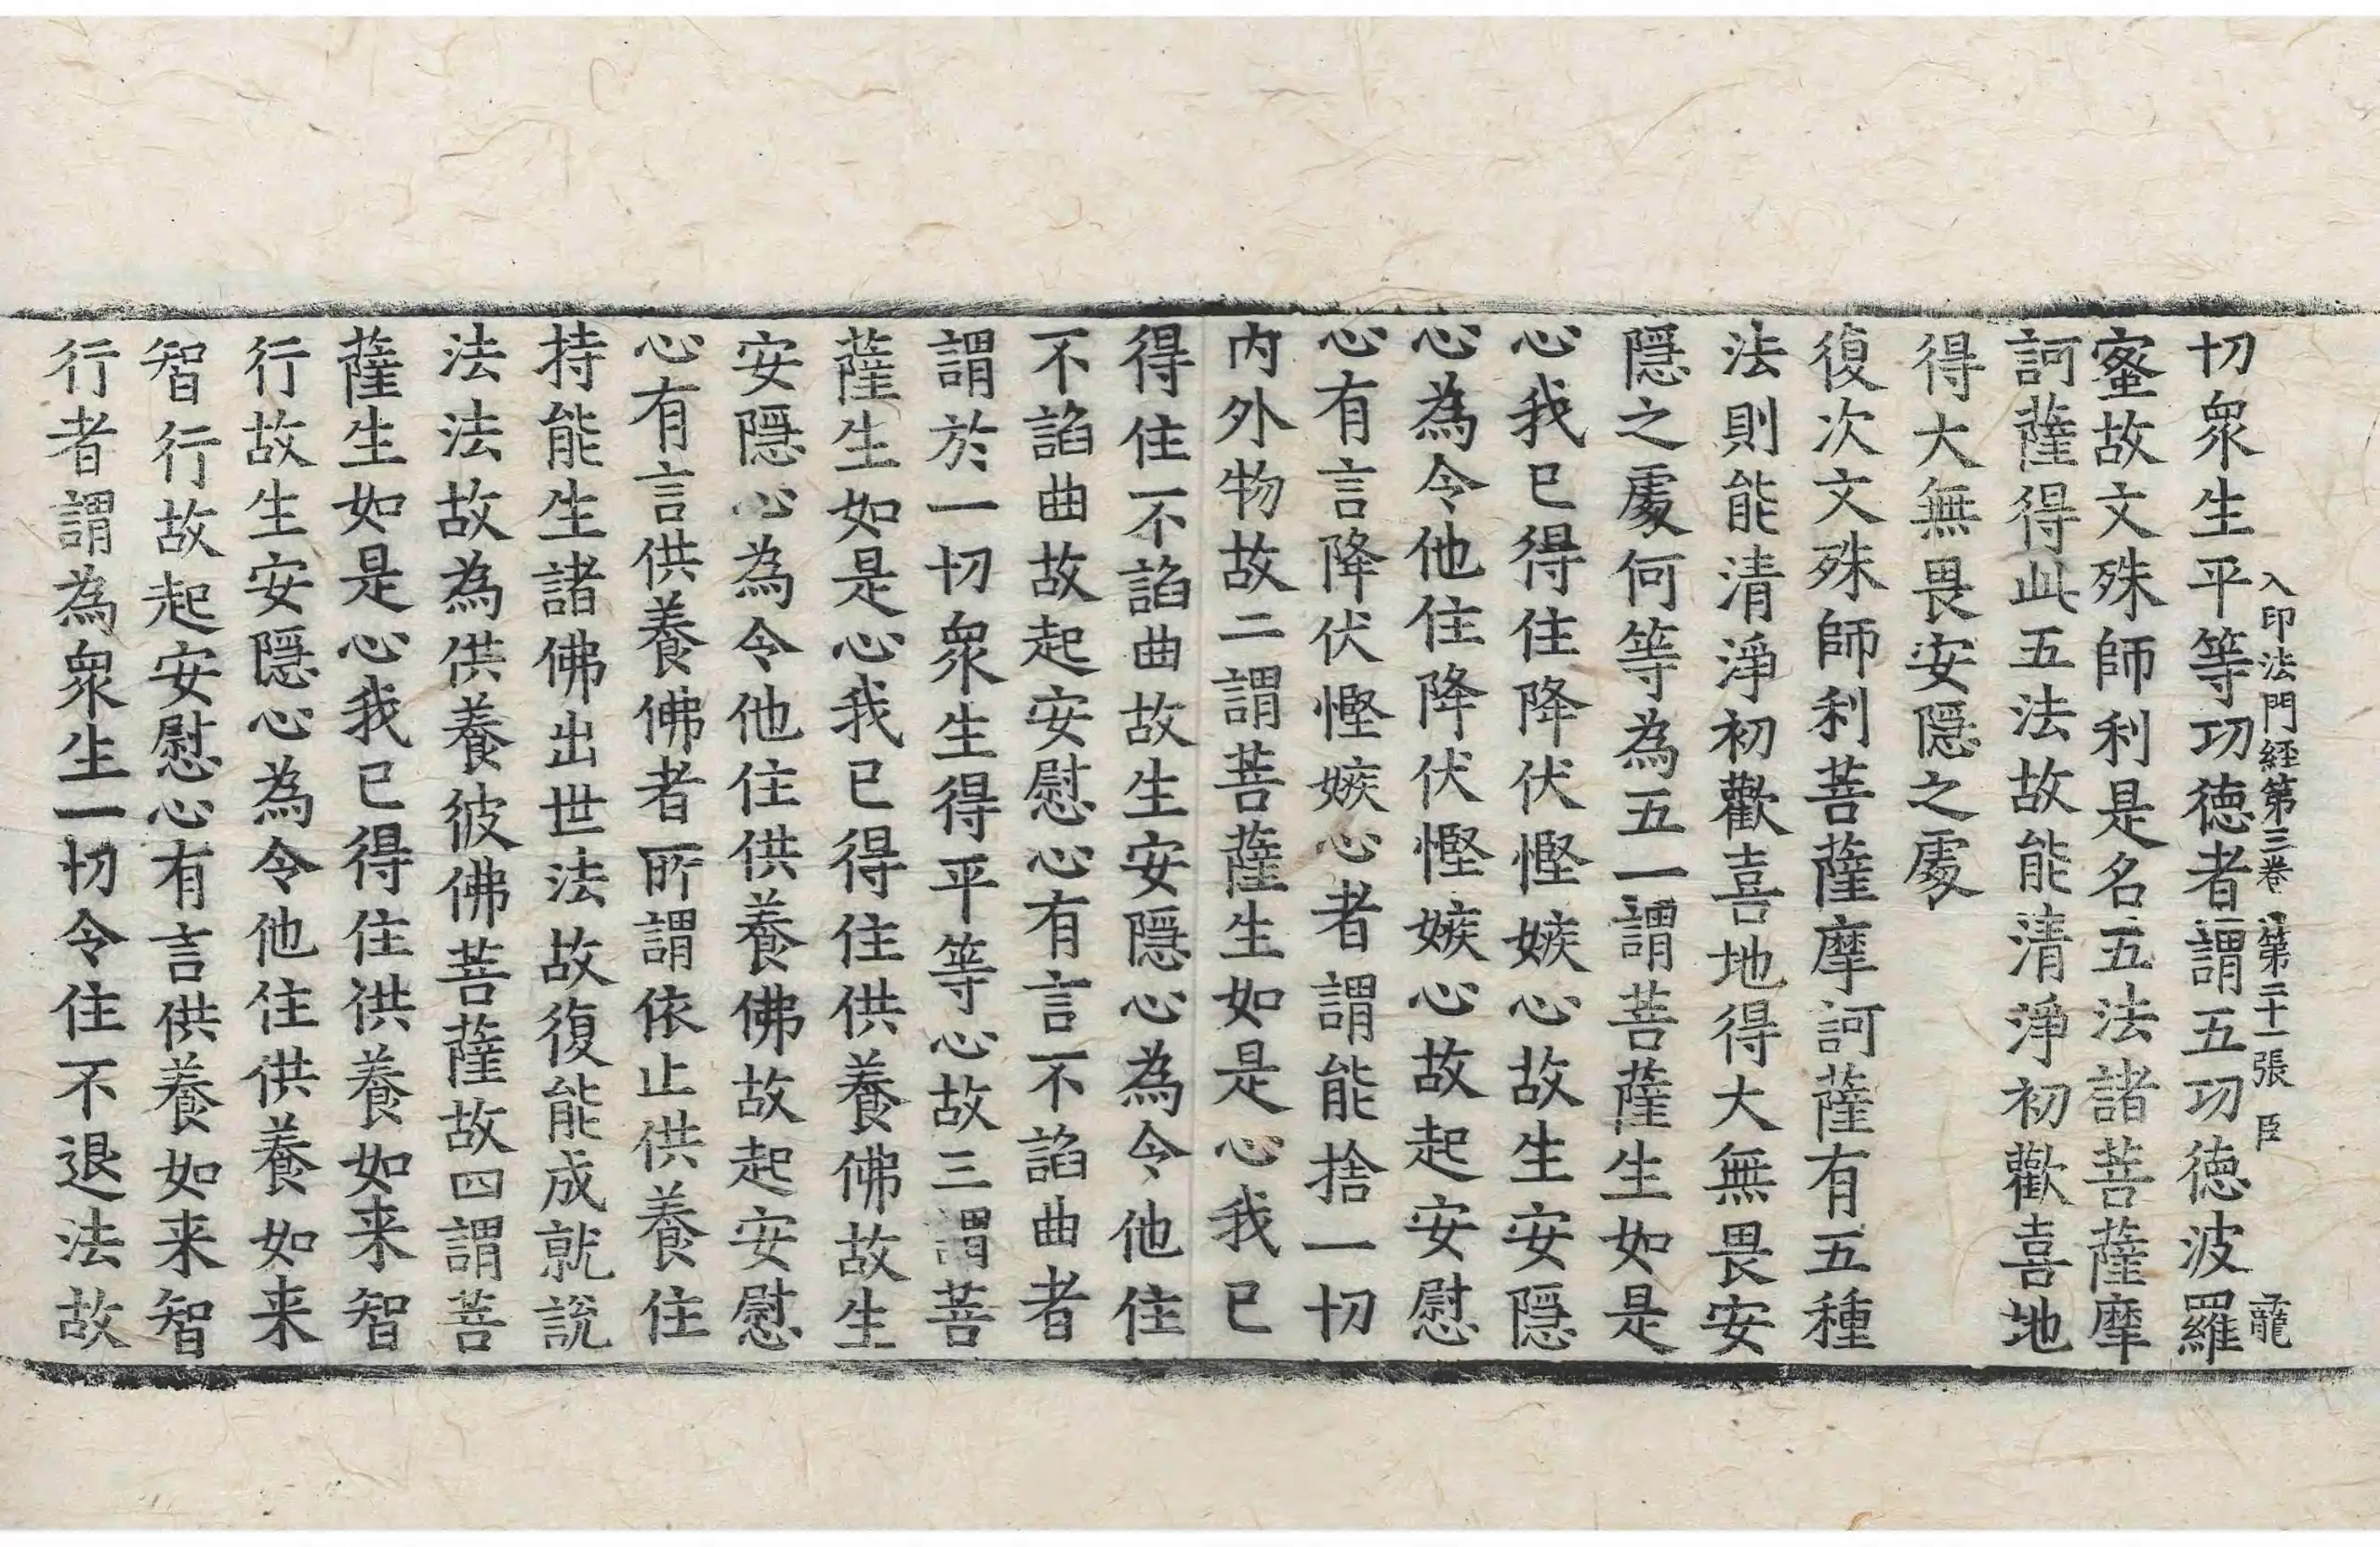 入印法門經第三卷 第二十一張 臣 龍
切衆生平等功德者謂五功德波羅
蜜故文殊師利是名五法諸菩薩摩
訶薩得此五法故能清淨初歡喜地
得大無畏安隱之處
復次文殊師利菩薩摩訶薩有五種
法則能清淨初歡喜地得大無畏安
隱之處何等為五一謂菩薩生如是
心我已得住降伏慳嫉心故生安隱
心為令他住降伏慳嫉心故起安慰
心有言降伏慳嫉心者謂能捨一切
内外物故二謂菩薩生如是心我已
得住不諂曲故生安隱心為令他住
不諂曲故起安慰心有言不諂曲者
謂於一切衆生得平等心故三謂菩
薩生如是心我已得住供養佛故生
安隱心為令他住供養佛故起安慰
心有言供養佛者所謂依止供養住
持能生諸佛出世法故復能成就說
法法故為供養彼佛菩薩故四謂菩
薩生如是心我已得住供養如来智
行故生安隱心為令他住供養如来
智行故起安慰心有言供養如来智
行者謂為衆生一切令住不退法故